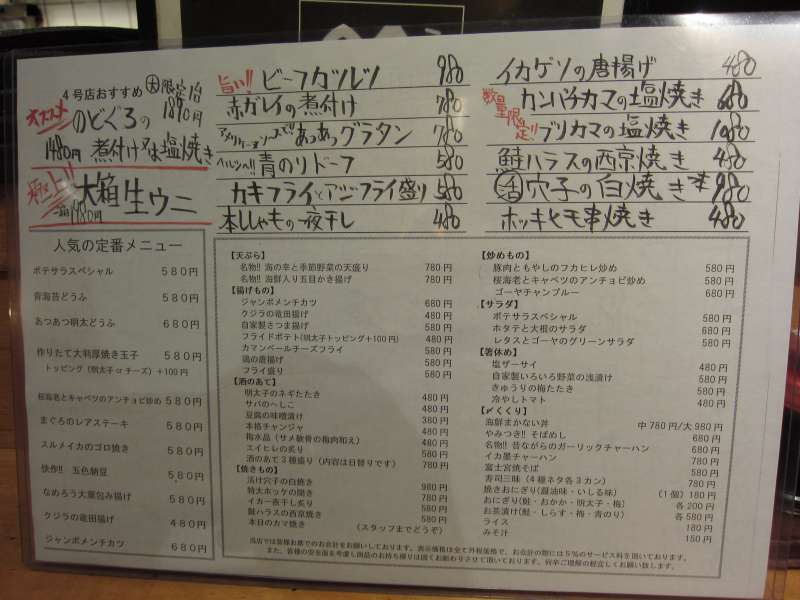 4号店おすすめ
大限定10
オススメ
のどぐろの
1890円
1480円
煮付け又は塩焼き
極上!!
大箱生ウニ
一箱1480円
旨い!! ビーフカツレツ 980
赤ガレイの煮付け 780
あつあつグラタン 780
ヘルシー!! 青のりドーフ 580
カキフライとアジフライ盛り 580
本ししゃもの一夜干し 480
イカゲソの唐揚げ 480
数量限定!!
カンパチカマの塩焼き 680
ブリカマの塩焼き 1080
鮭ハラスの西京焼き 480
活穴子の白焼き 980
ホッキヒモ串焼き 480
人気の定番メニュー
ポテサラスペシャル 580円
青海苔どうふ 580円
あつあつ明太どうふ 680円
作りたて大判厚焼き玉子 580円
トッピング(明太子orチーズ)+100円
桜海老とキャベツのアンチョビ炒め 580円
まぐろのレアステーキ 580円
スルメイカのゴロ焼き 580円
快作!! 五色納豆 580円
なめろう大葉包み揚げ 580円
クジラの竜田揚げ 480円
ジャンボメンチカツ 680円
【天ぷら】
名物!! 海の幸と季節野菜の天盛り 780円
名物!! 海鮮入り五目かき揚げ 780円
【揚げもの】
ジャンボメンチカツ 680円
クジラの竜田揚げ 480円
自家製さつま揚げ 580円
フライドポテト(明太子トッピング+100円) 480円
カマンベールチーズフライ 580円
鶏の唐揚げ 580円
フライ盛り 580円
【酒のあて】
明太子のネギたたき 480円
サバのへしこ 480円
豆腐の味噌漬け 380円
本格チャンジャ 480円
梅水晶(サメ軟骨の梅肉和え) 480円
エイヒレの炙り 580円
酒のあて3種盛り(内容は日替りです) 780円
【焼きもの】
活け穴子の白焼き 980円
特大ホッケの開き 780円
イカ一夜干し炙り 580円
鮭ハラスの西京焼き 580円
本日のカマ焼き (スタッフまでどうぞ)
【炒めもの】
豚肉ともやしのフカヒレ炒め 580円
桜海老とキャベツのアンチョビ炒め 580円
ゴーヤチャンプルー 680円
【サラダ】
ポテサラスペシャル 580円
ホタテと大根のサラダ 680円
レタスとゴーヤのグリーンサラダ 580円
【箸休め】
塩ザーサイ 480円
自家製いろいろ野菜の浅漬け 580円
きゅうりの梅たたき 480円
冷やしトマト 480円
【〆くくり】
海鮮まかない丼 中780円/大980円
やみつき!! そぼめし 680円
名物!! 昔ながらのガーリックチャーハン 680円
イカ墨チャーハン 780円
富士宮焼そば 580円
寿司三昧(4種ネタ各3カン) 780円
焼きおにぎり(醤油味・いしる味) (1個)180円
おにぎり(鮭・おかか・明太子・梅) 各200円
お茶漬け(鮭・しらす・梅・青のり) 各580円
ライス 180円
みそ汁 150円
当店では皆様お席でのお会計をお願いしております。表示価格は全て外税価格で、お会計の際には5%のサービス料を頂いております。
また、皆様の安全面を考慮し商品のお持ち帰りは固くお断わりさせて頂いております。何卒ご理解の程宜しくお願い致します。